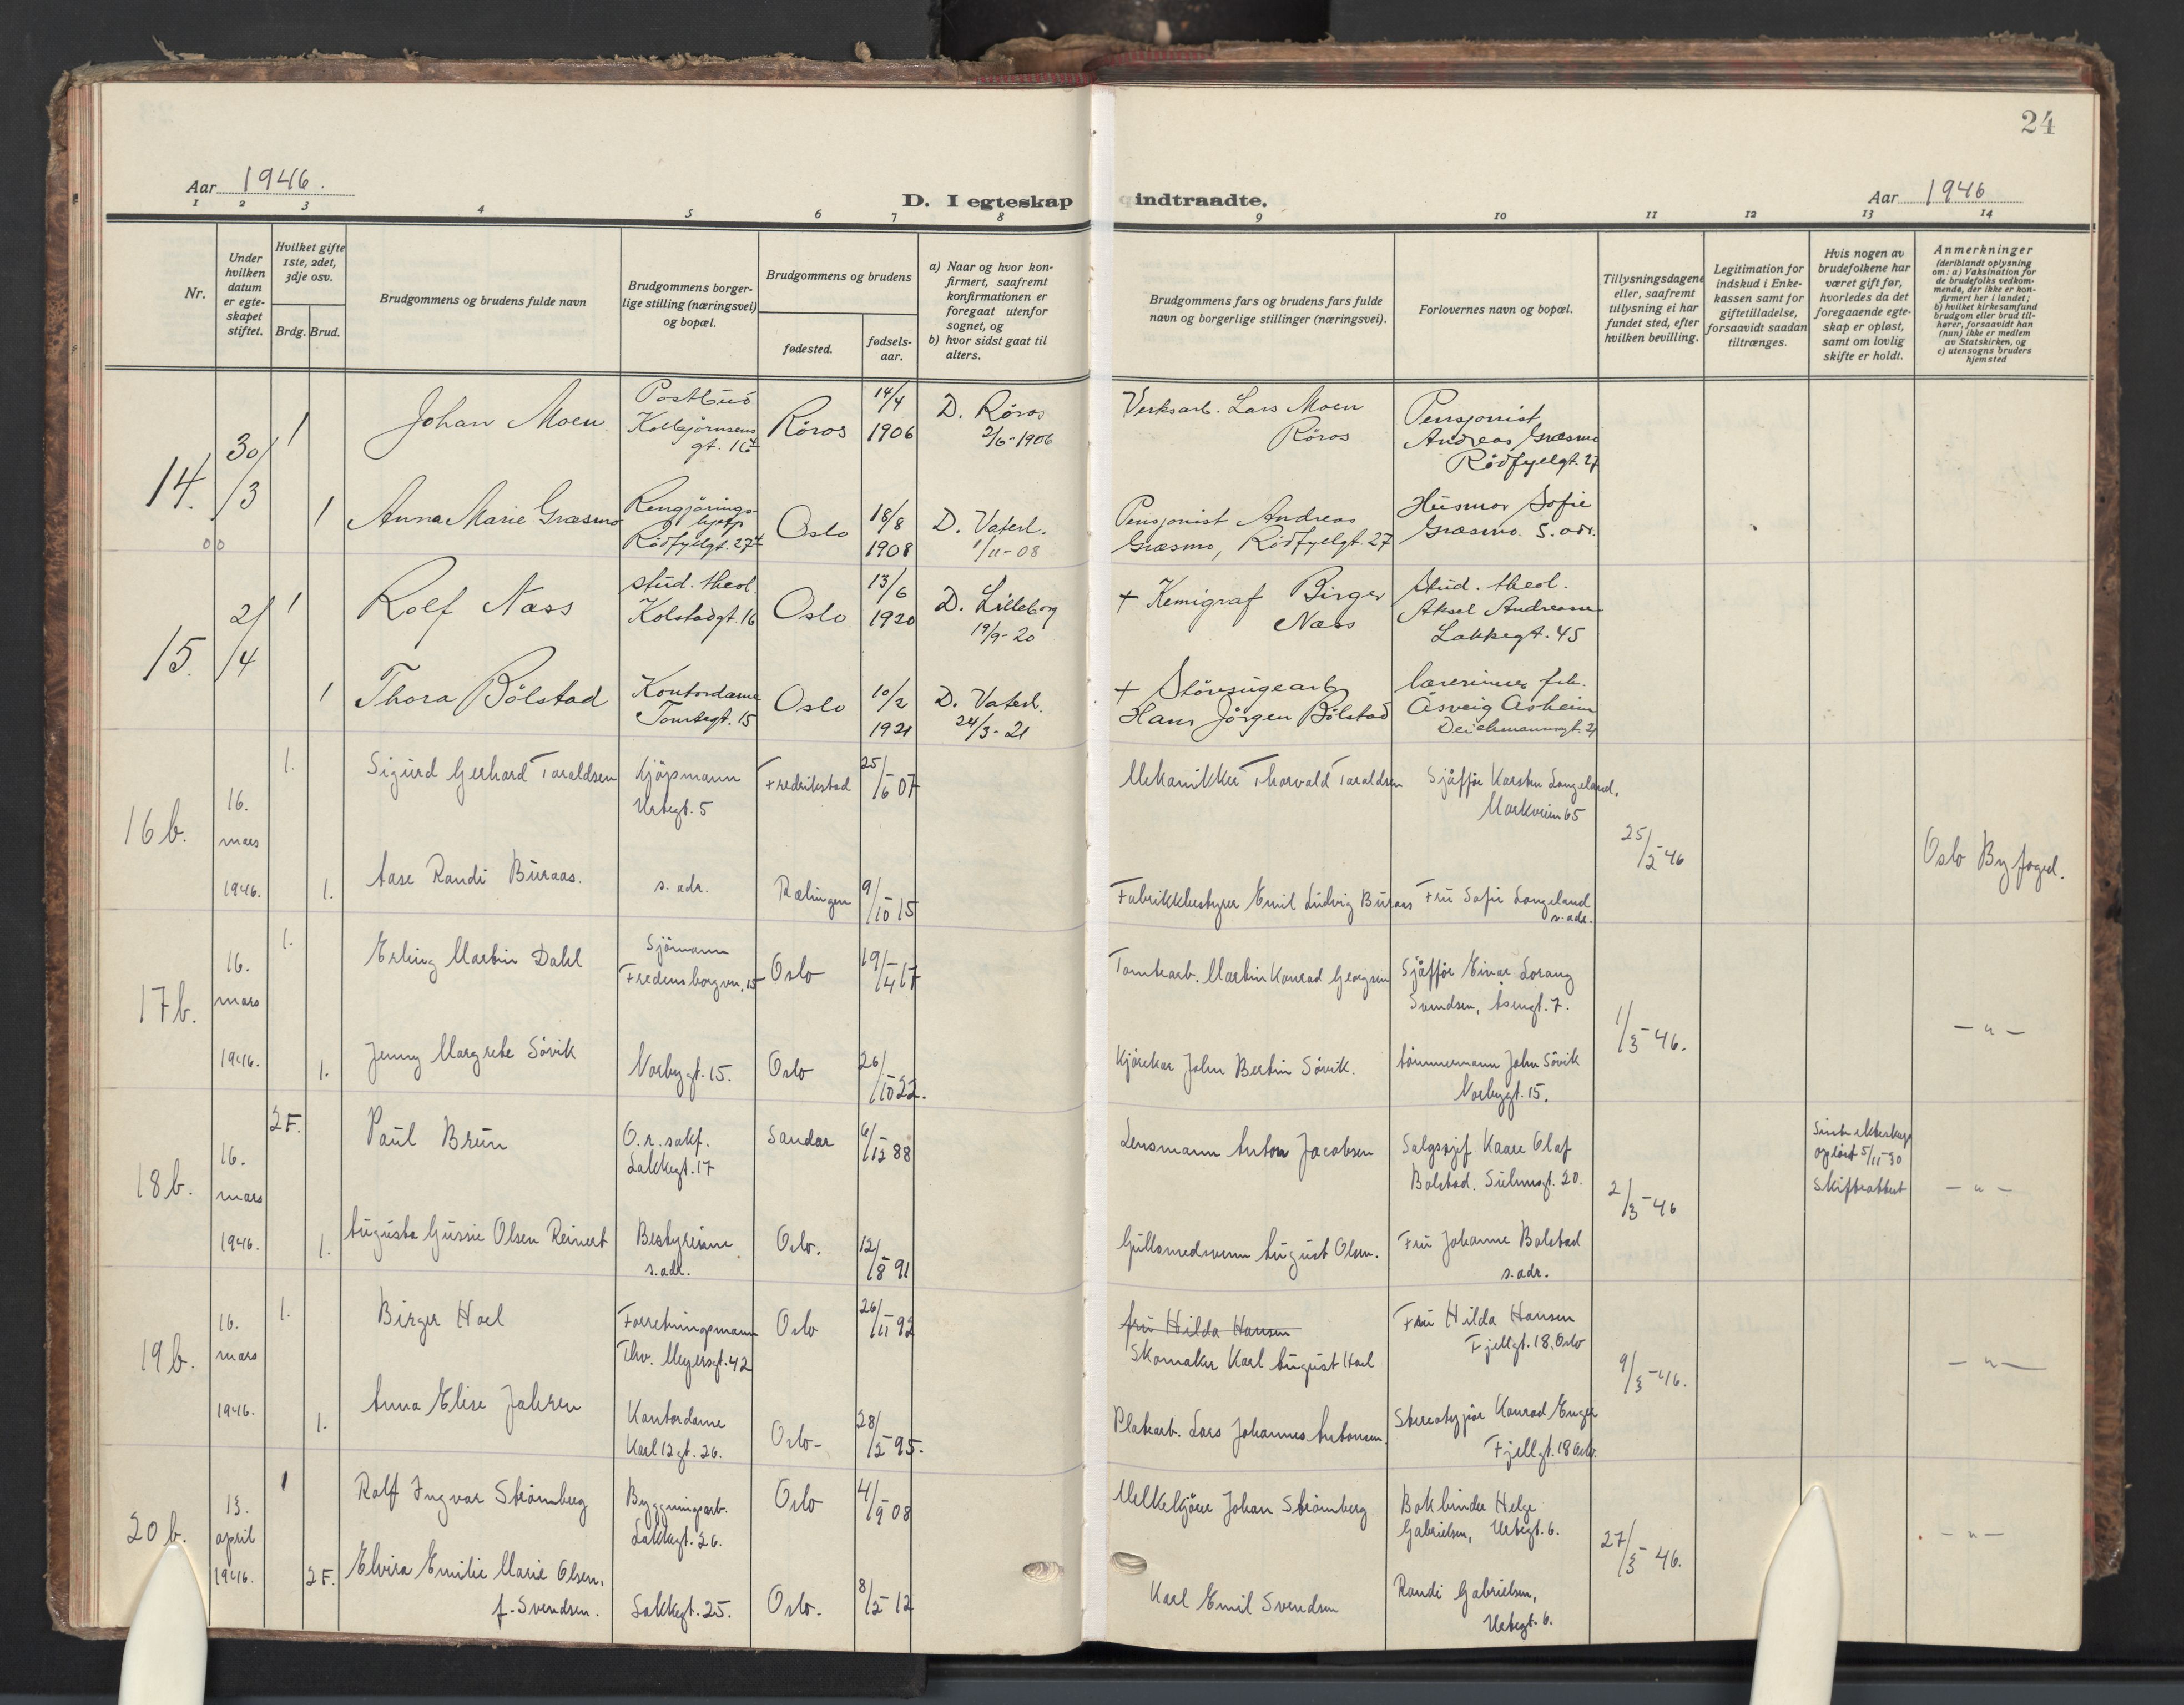 24
Aar 1946.
D. I egteskap indtraadte.
Aar 1946
1 2 3 4 5 6 7 8 9 10 11 12 13 14
Nr.
Under hvilken datum er egte-skapet stiftet.
Hvilket gifte 1ste, 2det, 3dje osv.
Brdg. Brud.
Brudgommens og brudens fulde navn
Brudgommens borger-lige stilling (næringsvei) og bopæl.
Brudgommens og brudens
fødested.
fødsels-aar.
a) Naar og hvor kon-firmert, saafremt konfirmationen er foregaat utenfor sognet, og
b) hvor sidst gaat til alters.
Brudgommens fars og brudens fars fulde navn og borgerlige stillinger (næringsvei).
Forlovernes navn og bopæl.
Tillysningsdagene eller, saafremt tillysning ei har fundet sted, efter hvilken bevilling.
Legitimation for indskud i Enke-kassen samt for giftetilladelse, forsaavidt saadan tiltrænges.
Hvis nogen av brudefolkene har været gift før, hvorledes da det foregaaende egte-skap er opløst, samt om lovlig skifte er holdt.
Anmerkninger
(deriblandt oplysning om: a) Vaksination for de brudefolks vedkom-mende, der ikke er kon-firmert her i landet;
b) hvilket kirkesamfund brudgom eller brud til-hører, forsaavidt han (hun) ikke er medlem av Statskirken, og
c) utensogns bruders hjemsted
14. 30/3
1 Johan Moen Postbud Kolbjørnsens gt. 16 Røros 14/4 1906 D. Røros 2/6-1906 Verksarb. Lars Moen Røros Pensjonist Andreas Græsmo Rödfyllgt. 27
1 Anna Marie Græsmo Rengjørings-hjelp Rödfyllgt. 27 Oslo 18/8 1908 D. Vaterl. 1/11-08 Pensjonist Andreas Græsmo, Rödfyllgt. 27 Husmor Sofie Græsmo S. adr.
15. 2/4
1 Rolf Næss stud. theol. Kolstadgt. 16 Oslo 13/6 1920 D. Lilleborg 19/9-20 + Kemigraf Birger Næss Stud. theol. Aksel Andreassen Lakkegt. 45
1 Thora Bölstad Kontordame Tomtegt. 15 Oslo 10/2 1921 D. Vaterl. 24/3-21 + Støvsugearb Hans Jörgen Bölstad lærerinne frk. Åsveig Åsheim Deichmannsgt. 21
16b. 16. mars 1946.
1. Sigurd Gerhard Taraldsen Kjöpmann Urtegt. 5 Fredrikstad 25/6 07 Mekanikker Tharvald Taraldsen Sjåffør Karsten Langeland, Markveien 65
25/2 46 Oslo Byfogd.
1. Aase Randi Buraas. s. adr. Rælingen 9/10 15 Fabrikkbestyrer Emil Ludvig Buraas Fru Sofie Langeland s. adr.
17b. 16. mars 1946.
1. Erling Martin Dahl Sjömann Fredensborgvn. 15 Oslo 19/4 17 Tomtearb. Martin Konrad Georgsen Sjåffør Einar Lorang Svendsen, Åsengt. 7.
1/3-46. -"-
1. Jenny Margrete Sövik Norbygt. 15. Oslo 26/10 22. Kjörekar John Bertin Sövik. tömmermann John Sövik Norbygt. 15.
18b. 16. mars 1946.
2F. Paul Brun O.r.sakf. Lakkegt. 17 Sandar 6/12 88 Lensmann Anton Jacobsen Salgssjef Kaare Olaf Bolstad. 20.
2/3-46 Siste ekteskap opløst 5/11-30 Skifteattest -"-
1. Augusta Gussie Olsen Reinert Bestyrerinne s. adr. Oslo. 12/8 91 Gullsmedsvenn August Olsen. Fru Johanne Bolstad s. adr.
19b. 16. mars 1946.
1. Birger Hoel Forretningsmann Thv. Meyersgt. 42 Oslo 26/11 92 fru Hilda Hansen Skomaker Karl August Hoel Fru Hilda Hansen Fjellgt. 18, Oslo
9/3-46. -"-
1. Anna Elise Jahren Kontordame Karl 12 gt. 26. Oslo- 28/2 95. Platearb. Lars Johannes Antonsen. Stereotypør Konrad Enger Fjellgt. 18 Oslo.
20b. 13. april 1946.
1 Rolf Ingvar Strömberg Bygningsarb. Lakkegt. 26. Oslo 4/9 08 Melkekjører Johan Strömberg Bokbinder Helge Gabrielsen, Urtegt. 6.
27/3 46. -"-
2F. Elvira Emilie Marie Olsen, f. Svendsen. Lakkegt. 25. Oslo. 8/2 12 Karl Emil Svendsen Randi Gabrielsen, Urtegt. 6.